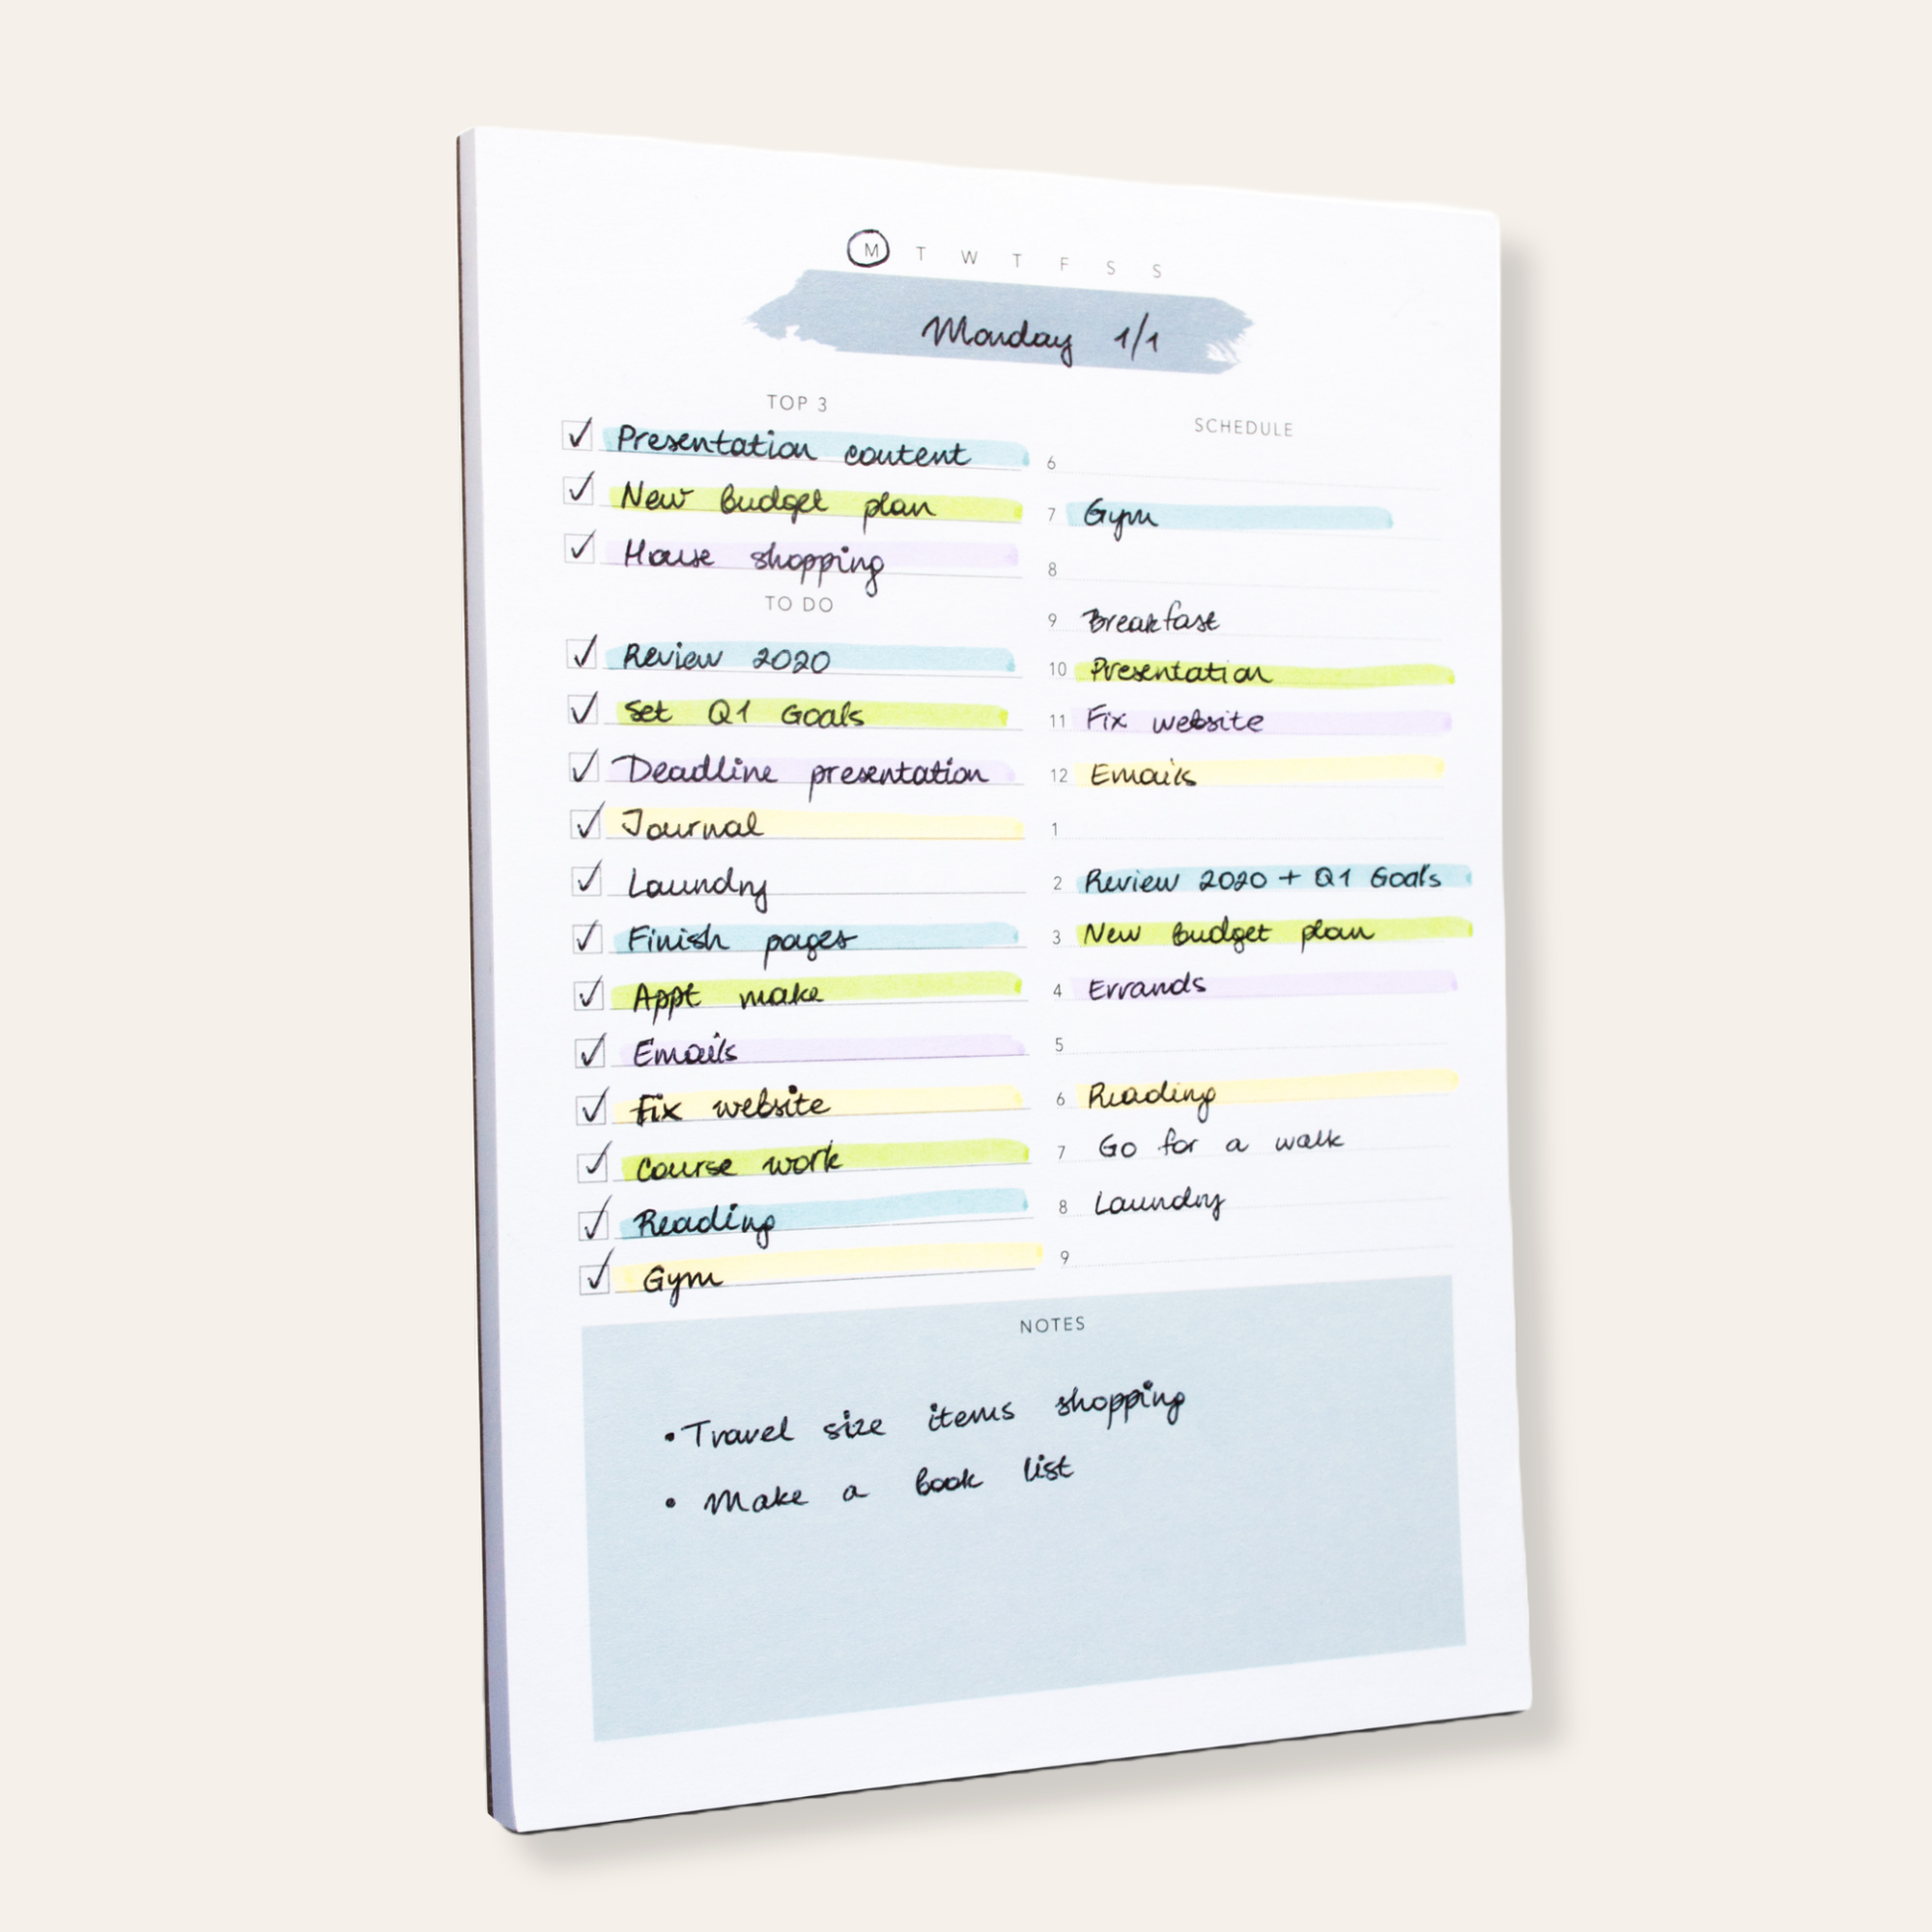 M T W T F S S
Monday 1/1
TOP 3
Presentation content
New budget plan
House shopping
TO DO
Review 2020
Set Q1 Goals
Deadline presentation
Journal
Laundry
Finish pages
Appt make
Emails
Fix website
Course work
Reading
Gym
SCHEDULE
6
7 Gym
8
9 Breakfast
10 Presentation
11 Fix website
12 Emails
1
2 Review 2020 + Q1 Goals
3 New budget plan
4 Errands
5
6 Reading
7 Go for a walk
8 Laundry
9
NOTES
• Travel size items shopping
• Make a book list